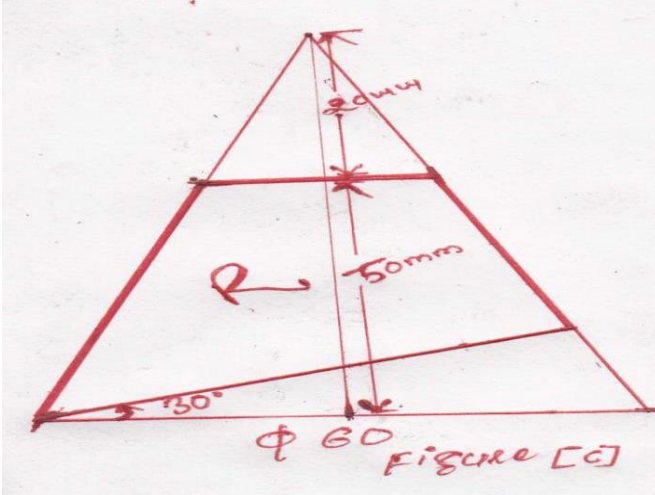 20mm
R
50mm
30°
Φ 60
Figure [C]